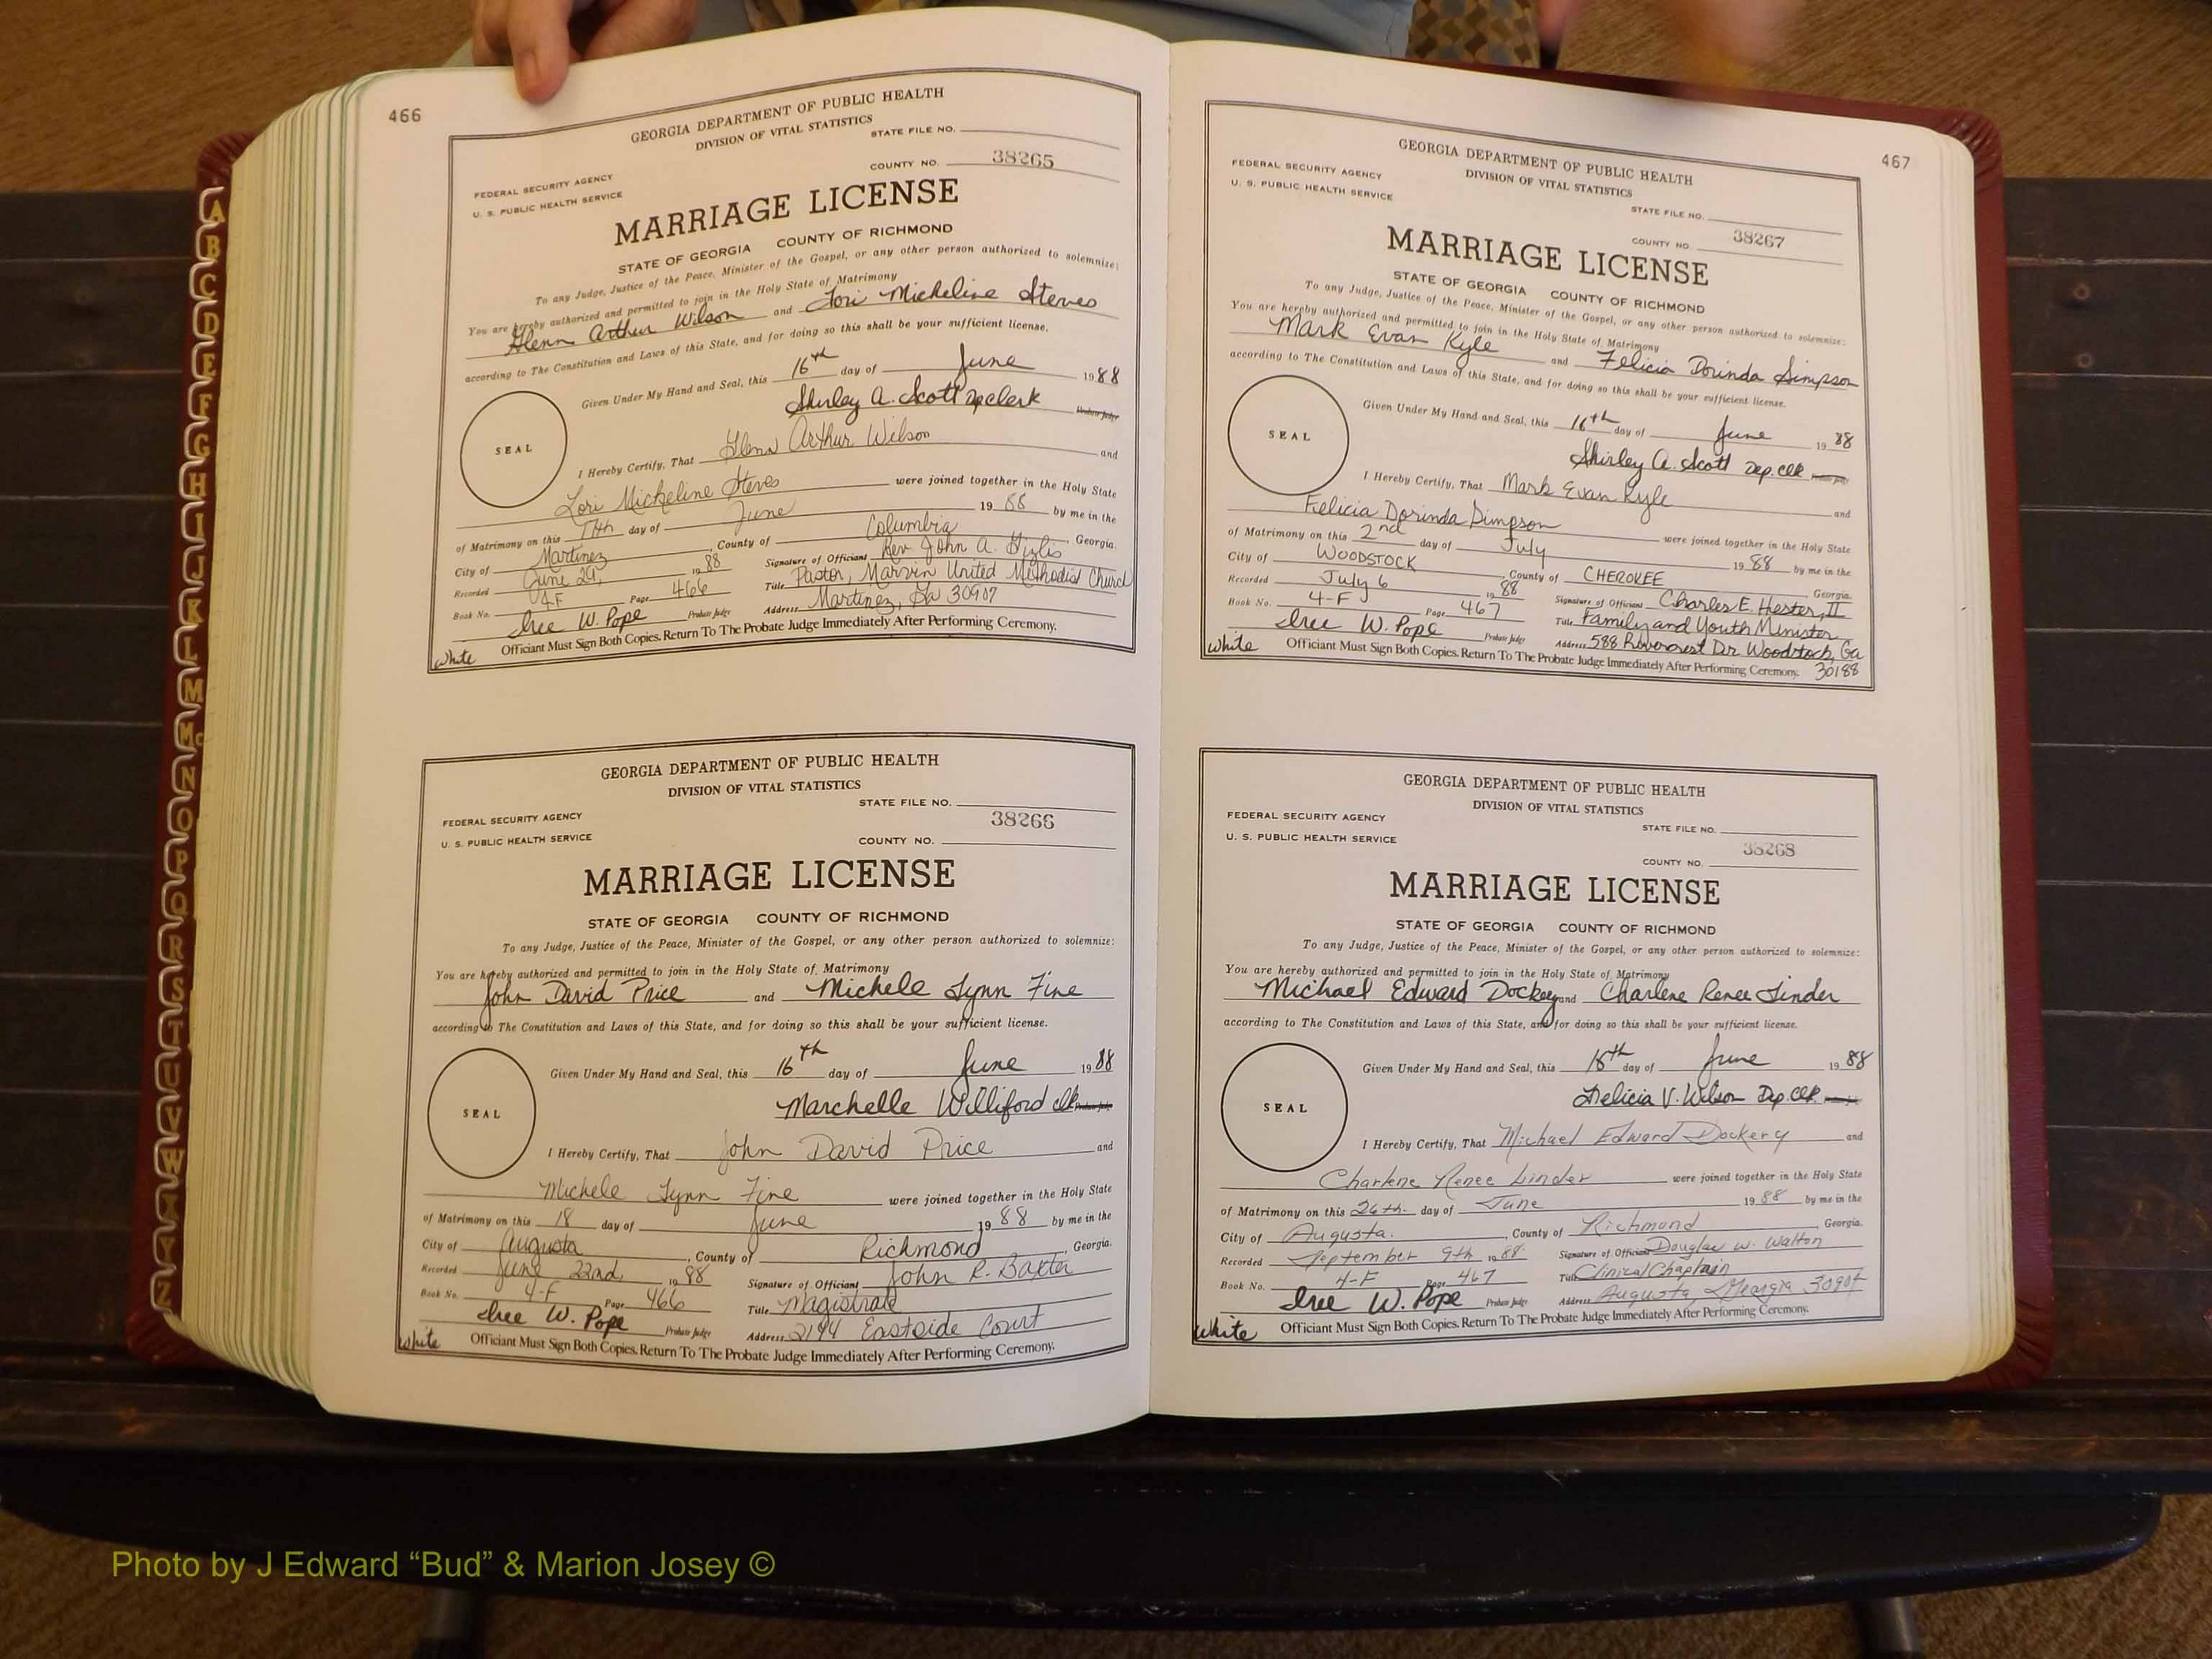 466
GEORGIA DEPARTMENT OF PUBLIC HEALTH
DIVISION OF VITAL STATISTICS
STATE FILE NO.
COUNTY NO. 38265
FEDERAL SECURITY AGENCY
U. S. PUBLIC HEALTH SERVICE
MARRIAGE LICENSE
STATE OF GEORGIA COUNTY OF RICHMOND
To any Judge, Justice of the Peace, Minister of the Gospel, or any other person authorized to solemnize:
You are hereby authorized and permitted to join in the Holy State of Matrimony
Glenn Arthur Wilson and Lori Micheline Steves
according to The Constitution and Laws of this State, and for doing so this shall be your sufficient license.
Given Under My Hand and Seal, this 16th day of June 1988
Shirley A. Scott Dp clerk Probate Judge
SEAL
I Hereby Certify, That Glenn Arthur Wilson and
Lori Micheline Steves were joined together in the Holy State
of Matrimony on this day of June 1988 by me in the
City of Martinez, County of Columbia, Georgia.
Recorded June 1988 Signature of Officiant Rev John A.
Book No. 4F Page 466 Title Pastor, Marvin United Methodist Church
Iree W. Pope Probate Judge Address Martinez, Ga 30907
Officiant Must Sign Both Copies. Return To The Probate Judge Immediately After Performing Ceremony.
White
GEORGIA DEPARTMENT OF PUBLIC HEALTH
DIVISION OF VITAL STATISTICS
STATE FILE NO.
38266
FEDERAL SECURITY AGENCY
U. S. PUBLIC HEALTH SERVICE
COUNTY NO.
MARRIAGE LICENSE
STATE OF GEORGIA COUNTY OF RICHMOND
To any Judge, Justice of the Peace, Minister of the Gospel, or any other person authorized to solemnize:
You are hereby authorized and permitted to join in the Holy State of Matrimony
John David Price and Michele Lynn Fine
according to The Constitution and Laws of this State, and for doing so this shall be your sufficient license.
Given Under My Hand and Seal, this 16th day of June 1988
Marchelle Williford clk Probate Judge
SEAL
I Hereby Certify, That John David Price and
Michele Lynn Fine were joined together in the Holy State
of Matrimony on this 18 day of June 1988 by me in the
City of Augusta, County of Richmond, Georgia.
Recorded June 22nd 1988 Signature of Officiant John R. Baxter
Book No. 4-F Page 466 Title Magistrate
Iree W. Pope Probate Judge Address 2194 Eastside Court
Officiant Must Sign Both Copies. Return To The Probate Judge Immediately After Performing Ceremony.
White
467
GEORGIA DEPARTMENT OF PUBLIC HEALTH
DIVISION OF VITAL STATISTICS
FEDERAL SECURITY AGENCY
U. S. PUBLIC HEALTH SERVICE
STATE FILE NO.
COUNTY NO. 38267
MARRIAGE LICENSE
STATE OF GEORGIA COUNTY OF RICHMOND
To any Judge, Justice of the Peace, Minister of the Gospel, or any other person authorized to solemnize:
You are hereby authorized and permitted to join in the Holy State of Matrimony
Mark Evan Kyle and Felicia Dorinda Simpson
according to The Constitution and Laws of this State, and for doing so this shall be your sufficient license.
Given Under My Hand and Seal, this 16th day of June 1988
Shirley A. Scott Dep. clk Probate Judge
SEAL
I Hereby Certify, That Mark Evan Kyle and
Felicia Dorinda Simpson were joined together in the Holy State
of Matrimony on this 2nd day of July 1988 by me in the
City of WOODSTOCK, County of CHEROKEE Georgia.
Recorded July 6 1988 Signature of Officiant Charles E. Hester, II
Book No. 4-F Page 467 Title Family and Youth Minister
Iree W. Pope Probate Judge Address 588 Rivercrest Dr. Woodstock, Ga
30188
Officiant Must Sign Both Copies. Return To The Probate Judge Immediately After Performing Ceremony.
White
GEORGIA DEPARTMENT OF PUBLIC HEALTH
DIVISION OF VITAL STATISTICS
FEDERAL SECURITY AGENCY
U. S. PUBLIC HEALTH SERVICE
STATE FILE NO.
38268
COUNTY NO.
MARRIAGE LICENSE
STATE OF GEORGIA COUNTY OF RICHMOND
To any Judge, Justice of the Peace, Minister of the Gospel, or any other person authorized to solemnize:
You are hereby authorized and permitted to join in the Holy State of Matrimony
Michael Edward Dockey and Charlene Renee Linder
according to The Constitution and Laws of this State, and for doing so this shall be your sufficient license.
Given Under My Hand and Seal, this day of June 1988
Felicia V. Wilson Dep. Clk.
SEAL
I Hereby Certify, That Michael Edward Dockery and
Charlene Renee Linder were joined together in the Holy State
of Matrimony on this 26th. day of June 1988 by me in the
City of Augusta., County of Richmond, Georgia.
Recorded September 9th 1988 Signature of Officiant Douglas W. Walton
Book No. 4-F Page 467 Title Clinical Chaplain
Iree W. Pope Probate Judge Address Augusta, Georgia 30904
Officiant Must Sign Both Copies. Return To The Probate Judge Immediately After Performing Ceremony.
White
A
B
C
D
E
F
G
H
I
J
K
L
M
Mc
N
O
P
Q
R
S
T
U
V
W
X
Y
Z
Photo by J Edward “Bud” & Marion Josey ©